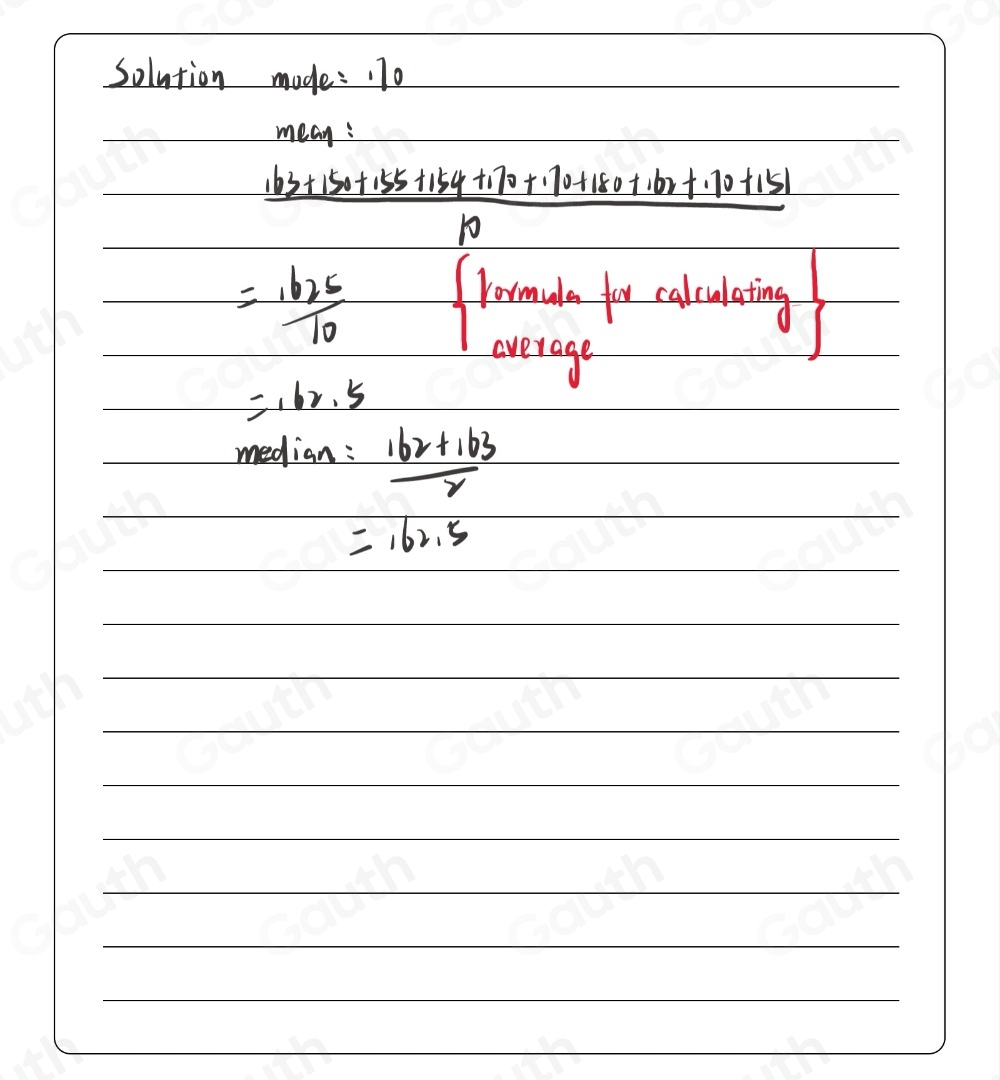 Solution mode: 170
mean:
163+150+155+154+170+170+180+162+170+151
10
= 1625
10
{formula for calculating
average}
=162.5
median: 162+163
2
= 162.5
Gauth